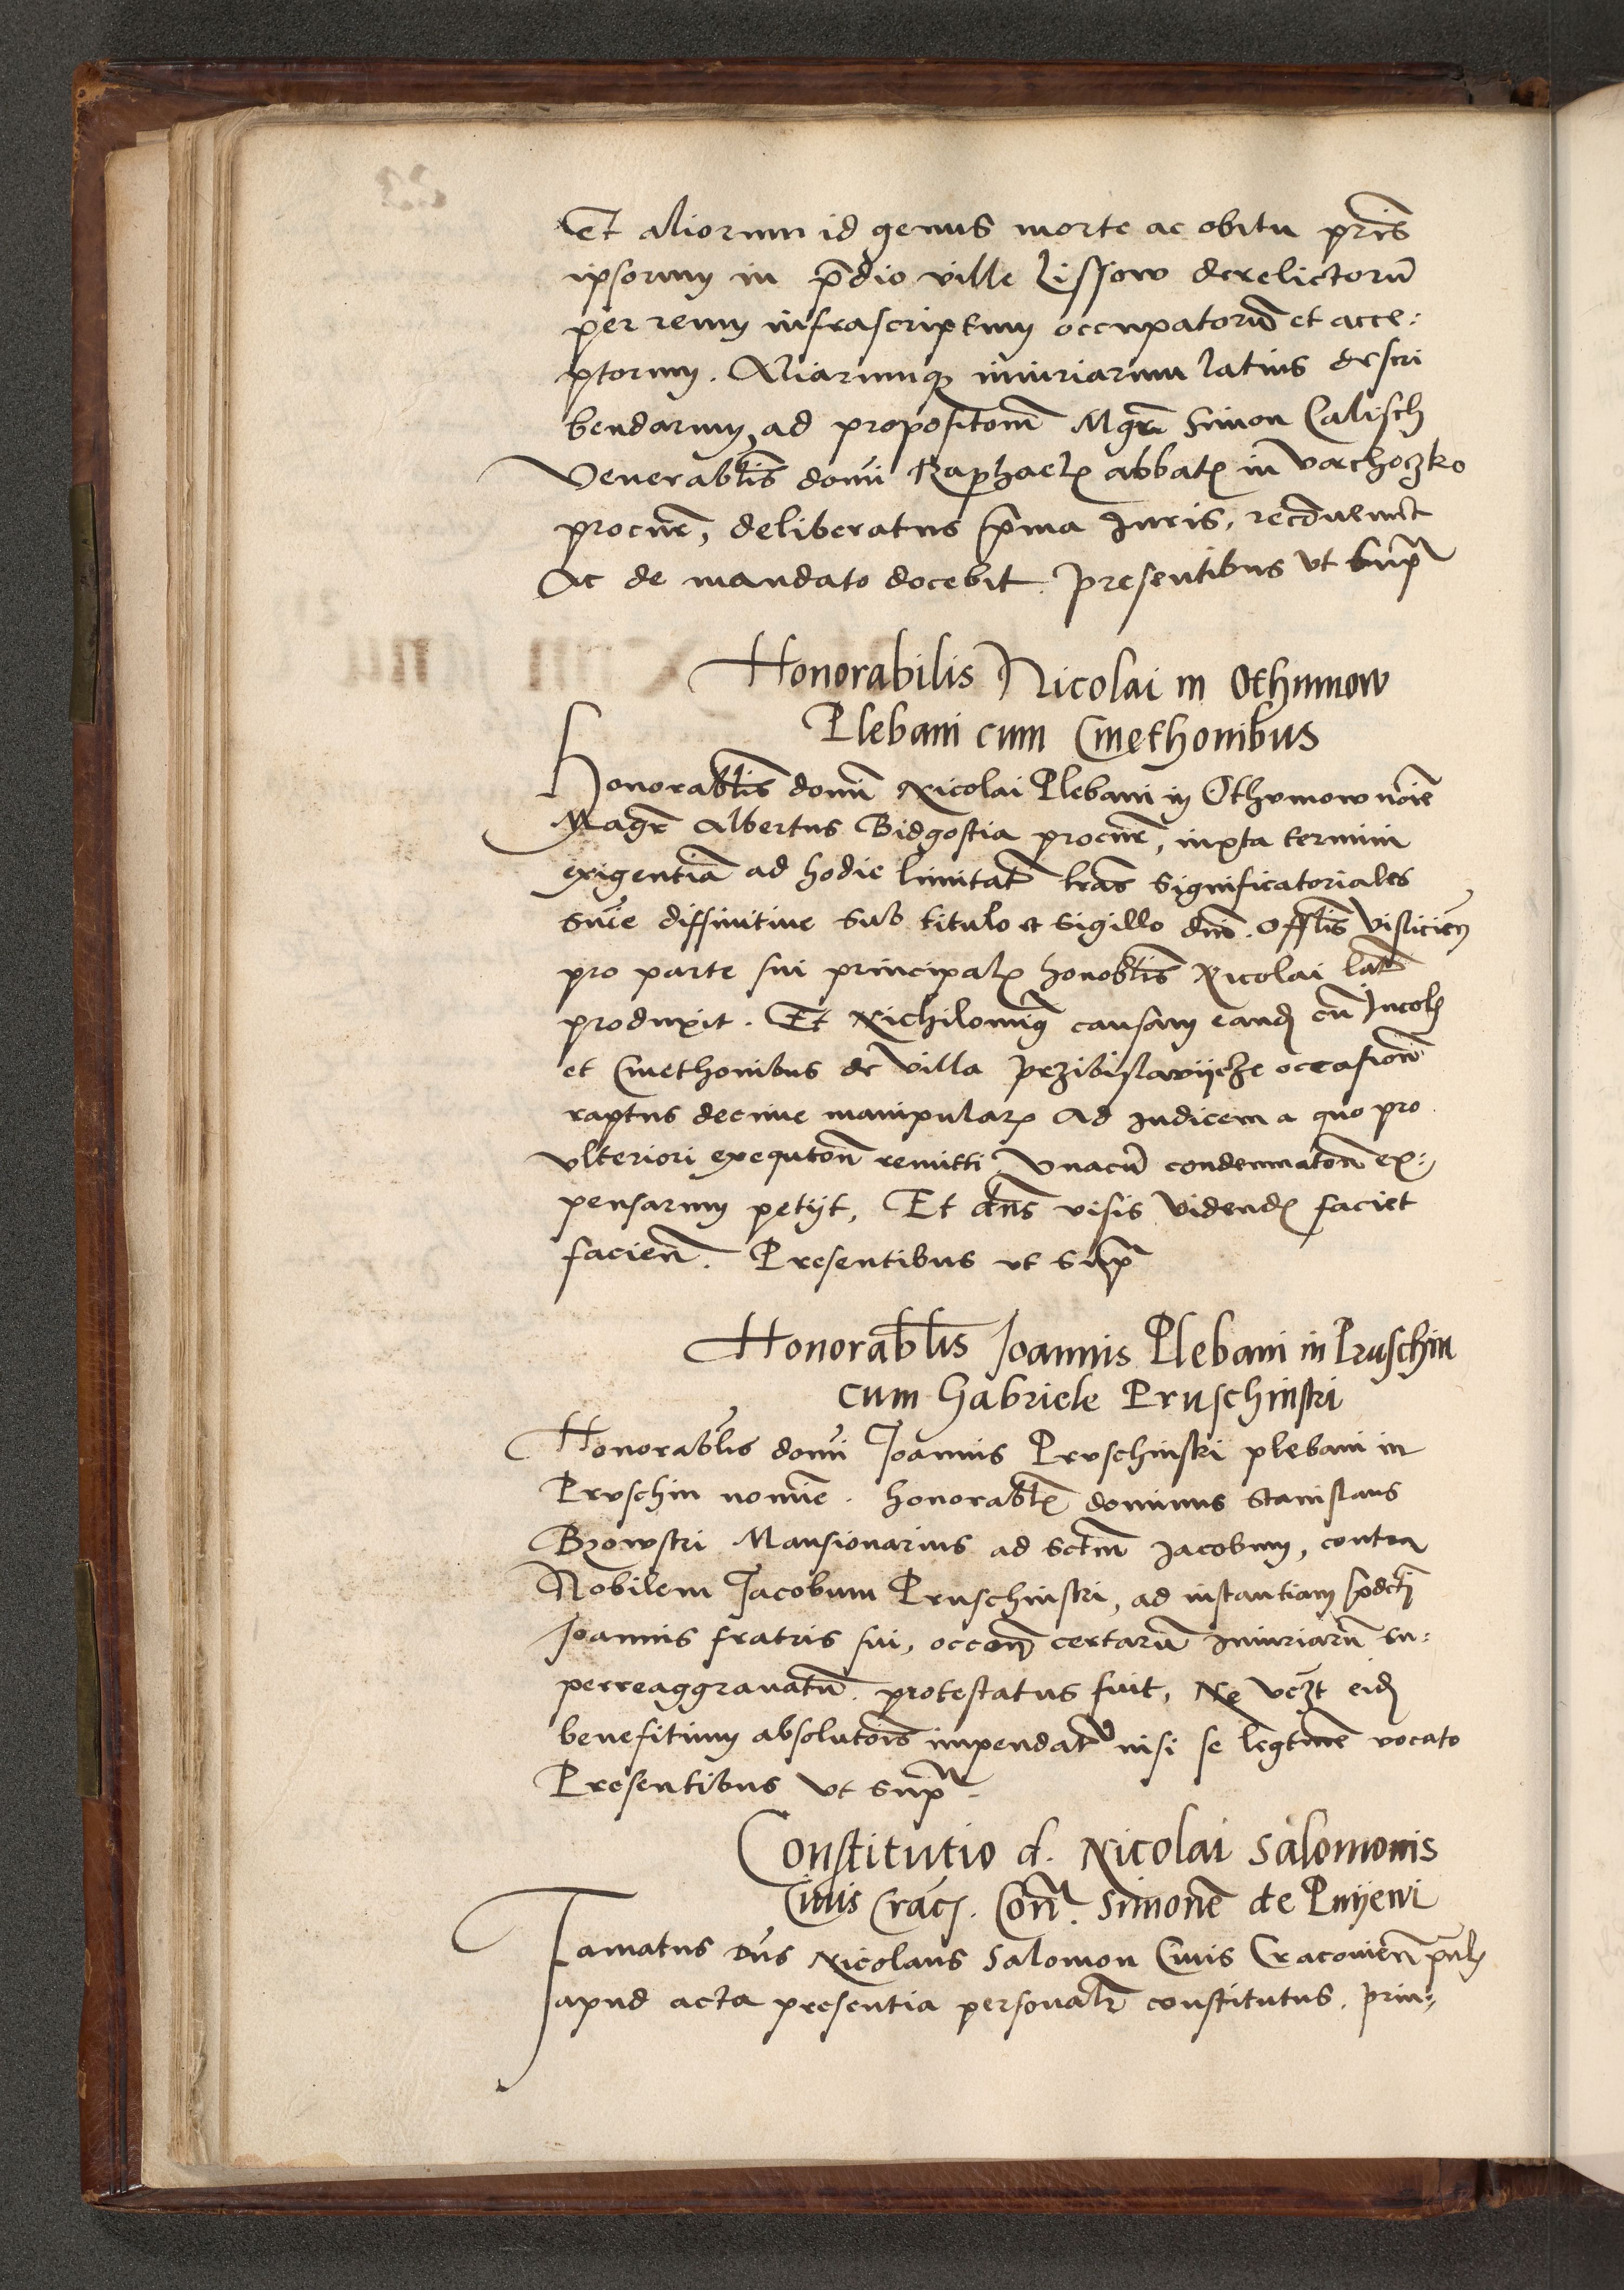 Et aliorum id genus morte ac obitu pris̄
ipsorum in p̄dio ville Lissow derelictorū
per reum infrascriptum occupatorū et acce:
ptorum. Aliarumq; iniuriarum latius descri
bendarum, ad propositom̄ Mgr̄i Simon Calisch
Venerabl̄is domī Raphaelis abbatis in Vachoczko
procur̄, deliberatus sp̄ma Juris,
Ac de mandato docebit. Presentibus vt sup̄
Honorabilis Nicolai in Othmmow
Plebani cum Cmethonibus
Honorabl̄is domī Nicolai Plebani in Othvmow noīe
Magr̄ Albertus Bidgostia procur̄, iuxta termini
exigentiā ad hodie limitat̄ lr̄as significatoriales
snīe diffinitiue sub titulo et sigillo dnī. Offl̄is Visliciēn
pro parte sui principalis honobl̄is Nicolai lat̄
produxit. Et Nichilomiq causam eand̄ cū Incol̄
et Cmethonibus de villa Przibislawijcze occasion̄
raptus decime manipularis Ad Iudicem a quo pro
vlteriori exequtōn̄ remitti Vnacū condemnatōn̄ ex:
pensarum petijt, Et dn̄s visis videndis faciet
facien̄. Presentibus vt sup̄
Honorabl̄is Joannis Plebani in Pruschin
cum Gabriele Pruschinski
Honorabl̄is domī Joannis Prvschinski plebani in
Prvschin nomīe. honorabl̄is dominus Stanislaus
Bzowski Mansionarius ad Sctm̄ Jacobum, contra
Nobilem Jacobum Pruschinski, ad instantiam sp̄dcti
Joannis fratris sui, occon̄ certarū Iniuriarū su:
perreaggrauatū. protestatus fuit, Ne vcz̄t eid̄
benefitium absolutōis impendat̄ nisi se legtm̄e vocato
Presentibus vt sup̄.
Constitutio d. Nicolai Salomonis
Ciuis Crac̄. Con̄. Simonē de Pnijewi
Famatus dn̄s Nicolaus Salomon Ciuis Cracouien̄
apud acta presentia personalr̄ constitutus. prin: